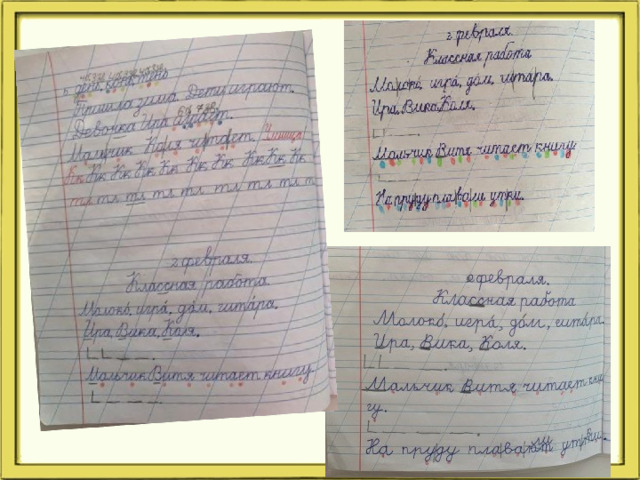 Пришла зима. Дети играют.
Девочка Ира
Мальчик Коля читает.
Кк Кк Кк Кк Кк Кк Кк Кк Кк
тл тл тл тл тл тл тл тл т
2 февраля.
Классная работа.
Молоко, игра, дом, гитара.
Ира, Вика, Коля.
Мальчик Витя читает книгу.
2 февраля.
Классная работа
Молоко, игра, дом, гитара.
Ира, Вика, Коля.
Мальчик Витя читает книгу
На пруду плавали утки.
2 февраля.
Классная работа
Молоко, игра, дом, гитара.
Ира, Вика, Коля.
Мальчик Витя читает кни
гу.
На пруду